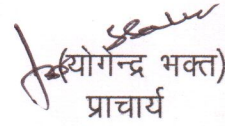 (योगेन्द्र भक्त)
प्राचार्य